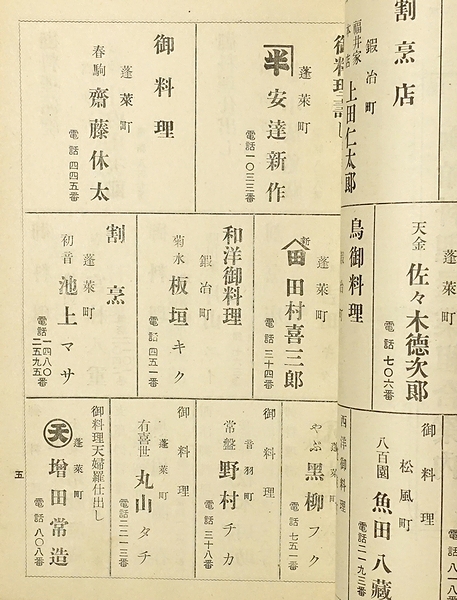 割烹店
鍛冶町
福井家
上田仁太郎
御料理
蓬莱町
半 安達新作
電話一〇三三番
御料理
蓬莱町
春駒 齋藤休太
電話四四五番
天金 佐々木德次郎
電話七〇六番
鳥御料理
蓬莱町
新 田 田村喜三郎
電話三十四番
和洋御料理
鍛冶町
菊水 板垣キク
電話四五一番
割烹
蓬莱町
初音 池上マサ
電話一四八〇番
二五九五番
御料理
松風町
八百園 魚田八藏
電話二一九三番
西洋御料理
蓬莱町
やぶ 黑柳フク
電話七五一番
御料理
音羽町
常盤 野村チカ
電話三十八番
御料理
蓬莱町
有喜世 丸山タチ
電話二二一三番
御料理天婦羅仕出し
蓬莱町
天 增田常造
電話八〇八番
五